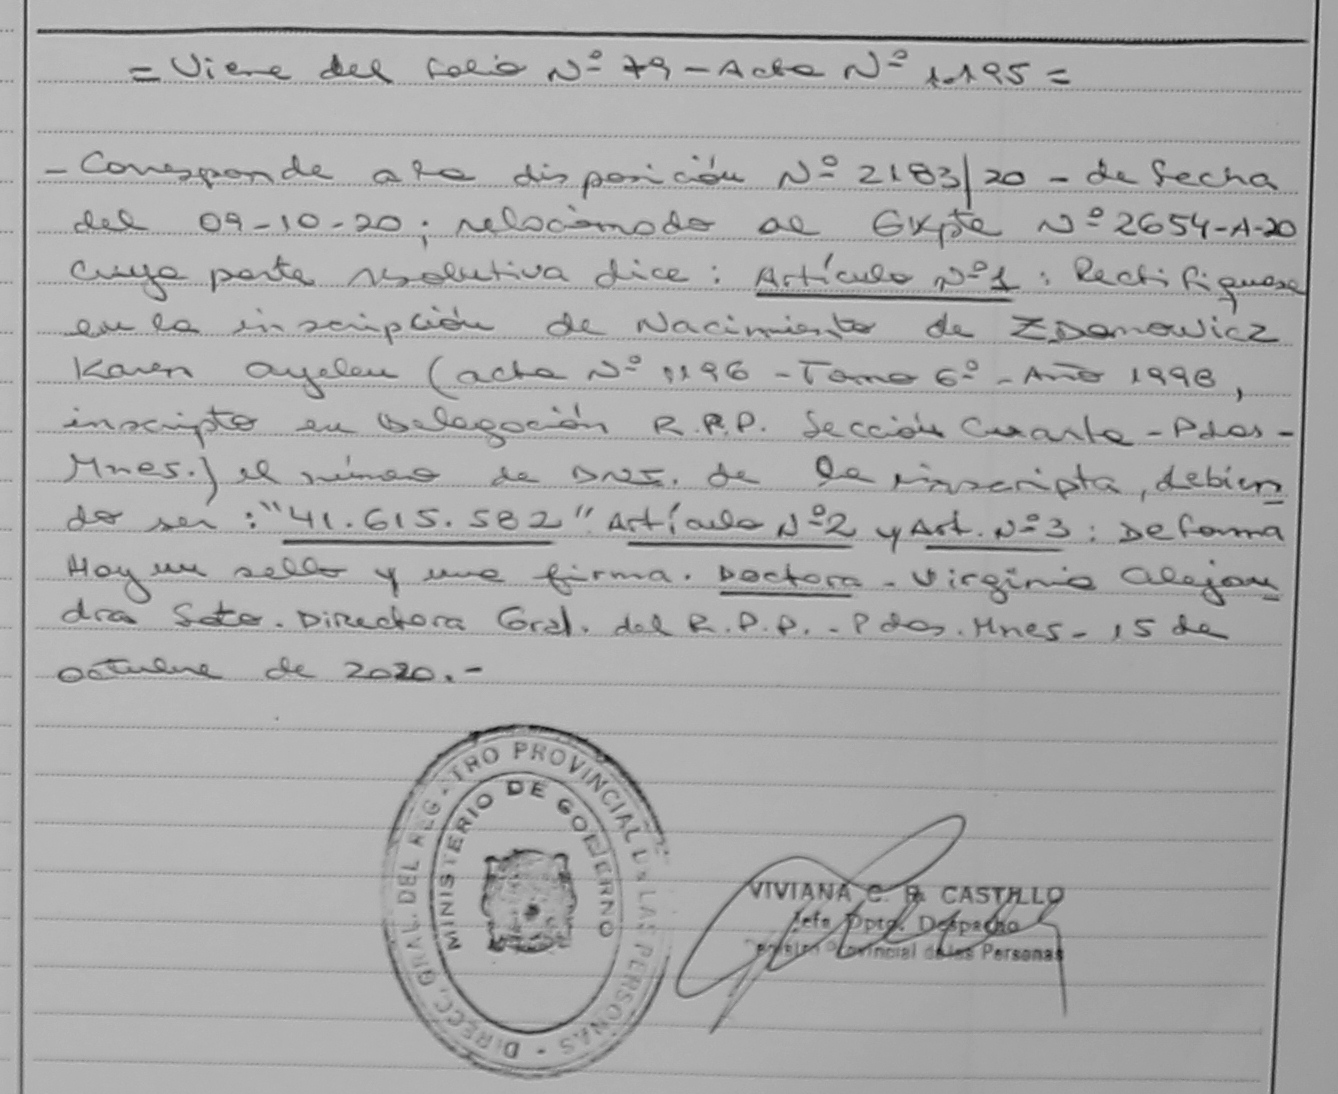 = Viene del Folio Nº 79 - Acta Nº 1.195 =
- Corresponde a la disposición Nº 2183/20 - de fecha
del 09-10-20; relacionado al Expte Nº 2654-A-20
cuya parte resolutiva dice: Artículo Nº1: Rectifiquese
en la inscripción de Nacimiento de ZDanowicz
Karen Ayelen (acta Nº 1196 - Tomo 6º - Año 1998,
inscripto en Delegación R.P.P. Sección Cuarta - Pdas -
Mnes.) el número de DNI. de la inscripta, debien
do ser: "41.615.582" Artículo Nº2 y Art. Nº3: De forma
Hay un sello y una firma. Doctora - Virginia Alejan
dra Soto. Directora Gral. del R.P.P. - Pdas. Mnes - 15 de
octubre de 2020.-
DIRECC. GRAL. DEL REGISTRO PROVINCIAL DE LAS PERSONAS
MINISTERIO DE GOBIERNO
VIVIANA C. R. CASTILLO
Jefe Dpto. Despacho
Provincial de las Personas